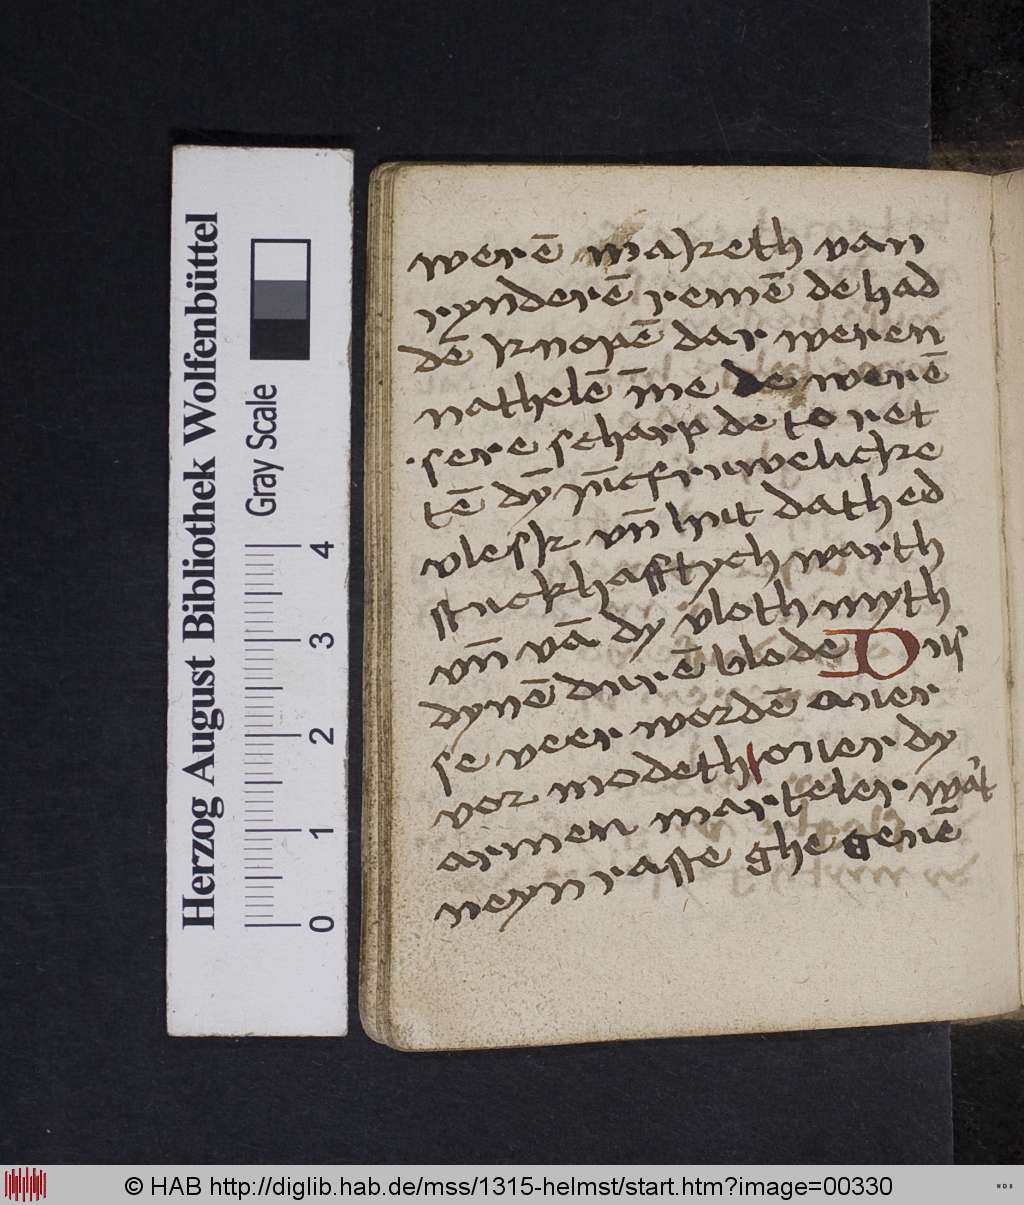 werē maketh van
rynderē remē de had
dē knopē dar weren
nathelē īne de werē
sere scharp de to ret
tē dȳ jūcfruwelicke
vlesk vn̄ hut dath ed
stuckhafftych warth
vn̄ vā dy vloth myth
dynē durē blode Dus
se veer wordē auer
vor modeth ouer dy
armen marteler wāt
neyn rasse ghe geuē
Herzog August Bibliothek Wolfenbüttel
Gray Scale
0 1 2 3 4
© HAB http://diglib.hab.de/mss/1315-helmst/start.htm?image=00330